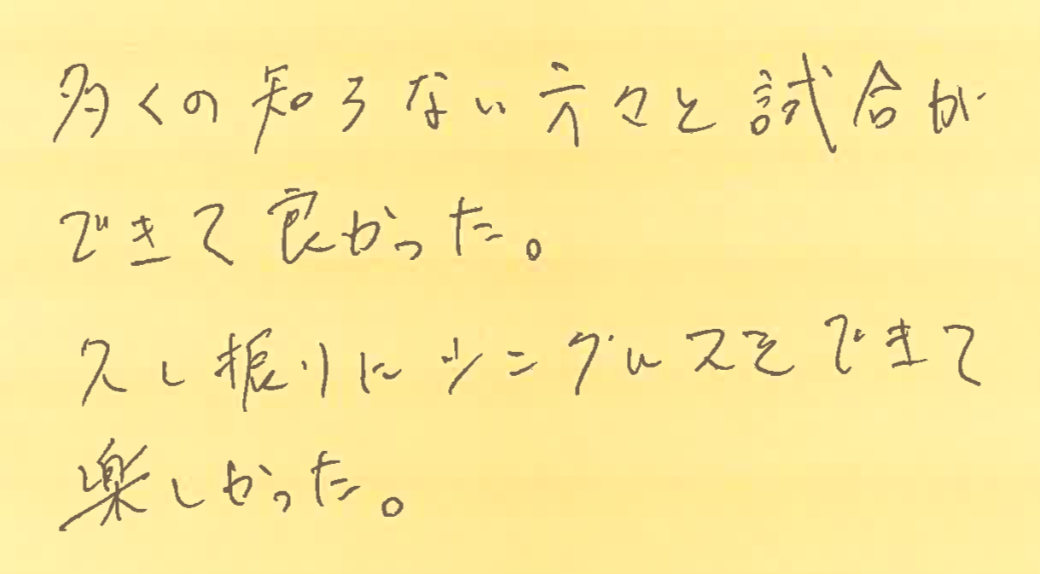 多くの知らない方々と試合が
できて良かった。
久し振りにシングルスをできて
楽しかった。